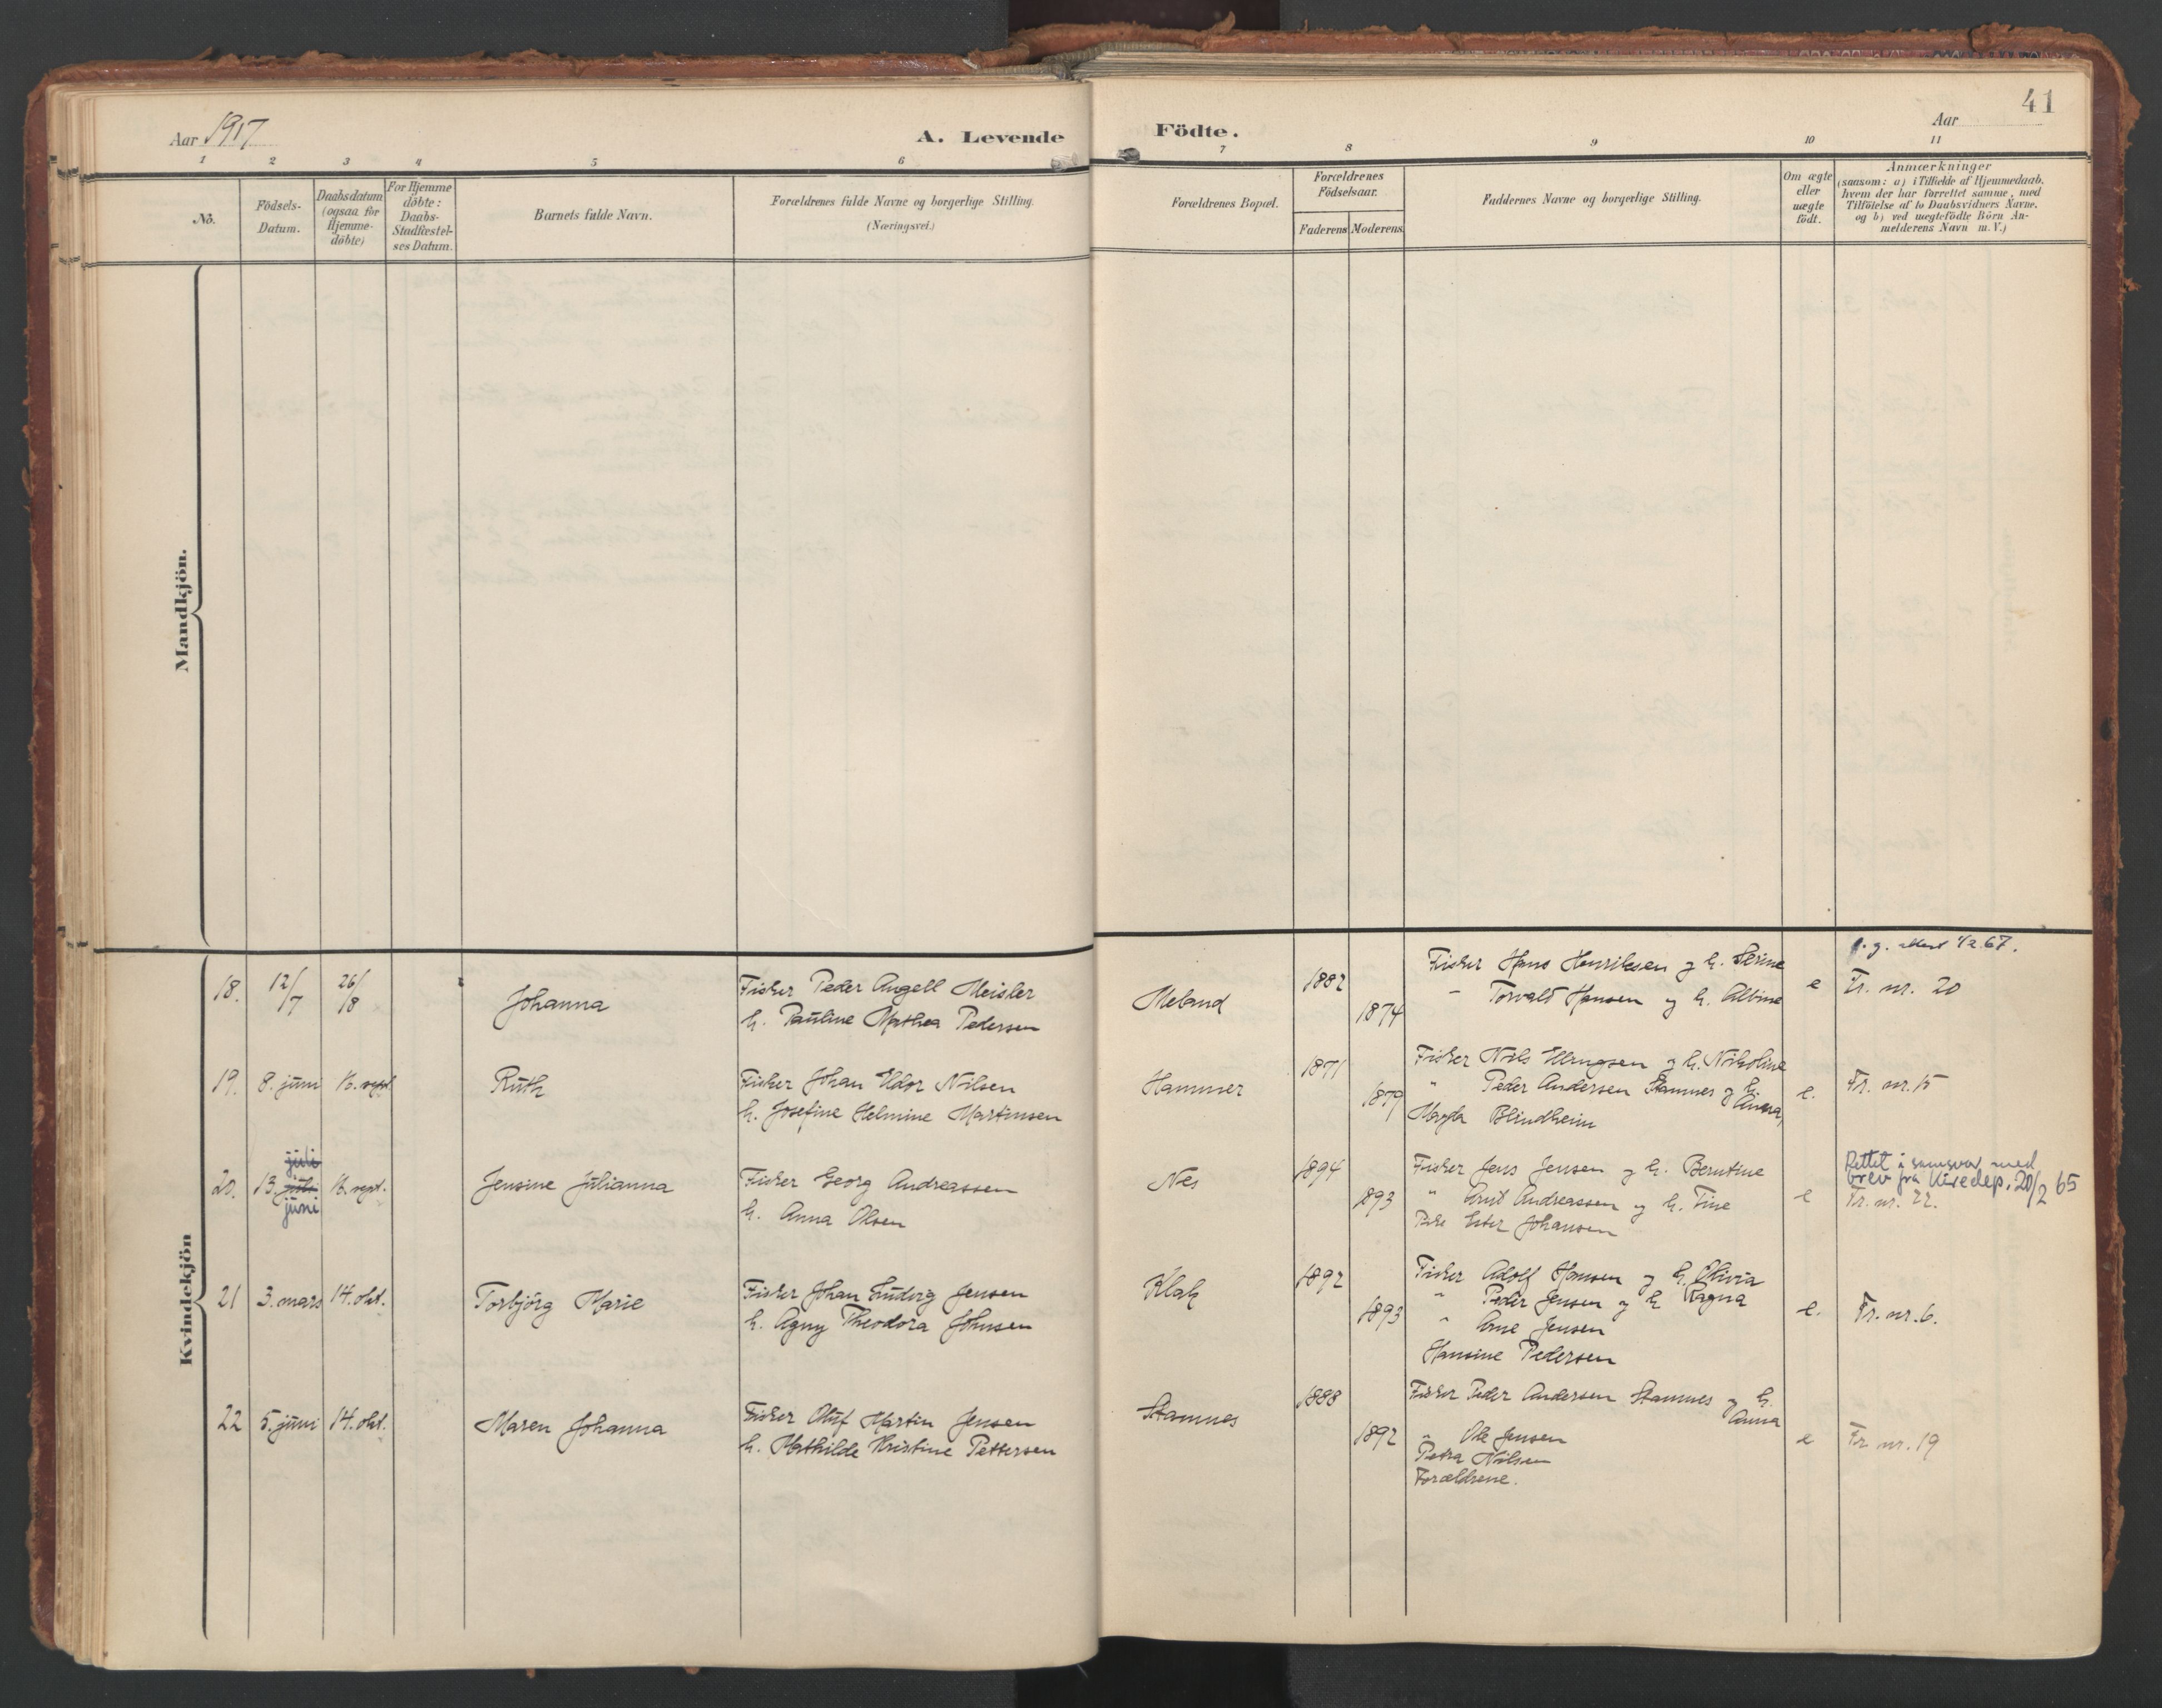 Aar 1917
A. Levende Födte.
Aar
41
1 2 3 4 5 6 7 8 9 10 11
No.
Födsels-
Datum.
Daabsdatum
(ogsaa for
Hjemme-
döbte)
For Hjemme
döbte:
Daabs-
Stadfæstel-
ses Datum.
Barnets fulde Navn.
Forældrenes fulde Navne og borgerlige Stilling.
(Næringsvei.)
Forældrenes Bopæl.
Forældrenes
Födselsaar.
Faderens Moderens
Faddernes Navne og borgerlige Stilling.
Om ægte
eller
uægte
födt.
Anmærkninger
(saasom: a) i Tilfælde af Hjemmedaab,
hvem der har forrettet samme, med
Tilföielse af to Daabsvidners Navne,
og b) ved uægtefödte Börn An-
melderens Navn m.V.)
Mandkjön.
Kvindekjön
18. 12/7 26/8
Johanna
Fisker Peder Angell Meisler
h. Pauline Mathea Pedersen
Meland
1882
1874
Fisker Hans Henriksen og h. Serine
" Torvald Hansen og h. Albine
e
1/2.67.
Fr. nr. 20
19. 8. juni 16. sept
Ruth
Fisker Johan Eldor Nilsen
h. Josefine Helmine Martinsen
Hammer
1871
1879
Fisker Nils Ellingsen og h. Nikoline
" Peder Andersen Stamnes og h.
Anna,
Magda Blindheim
e.
Fr. nr. 15
20. 13. juli juli juni 16. sept.
Jensine Julianna
Fisker Georg Andreassen
h. Anna Olsen
Nes
1894
1893
Fisker Jens Jensen og h. Berntine
" Arnt Andreassen og h. Tine
Pike Ester Johansen
e
Rettet i samsvar med
brev fra Kiredep. 20/2 65
Fr. nr. 22.
21 3. mars 14. okt.
Torbjörg Marie
Fisker Johan Ludvig Jensen
h. Agny Theodora Johnsen
Klak
1892
1893
Fisker Adolf Hansen og h. Olivia
" Peder Jensen og h. Ragna
" Arne Jensen
Hansine Pedersen
e.
Fr. nr. 6.
22 5. juni 14. okt.
Maren Johanna
Fisker Oluf Martin Jensen
h. Mathilde Kristine Pettersen
Stamnes
1888
1892
Fisker Peder Andersen Stamnes og h.
Anna
" Ole Jensen
Petra Nilsen
Forældrene.
e
Fr nr. 19